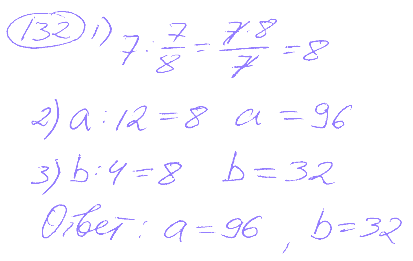 132 1) 7 : 7/8 = 7·8/7 = 8
2) a : 12 = 8 a = 96
3) b : 4 = 8 b = 32
Ответ: a = 96, b = 32